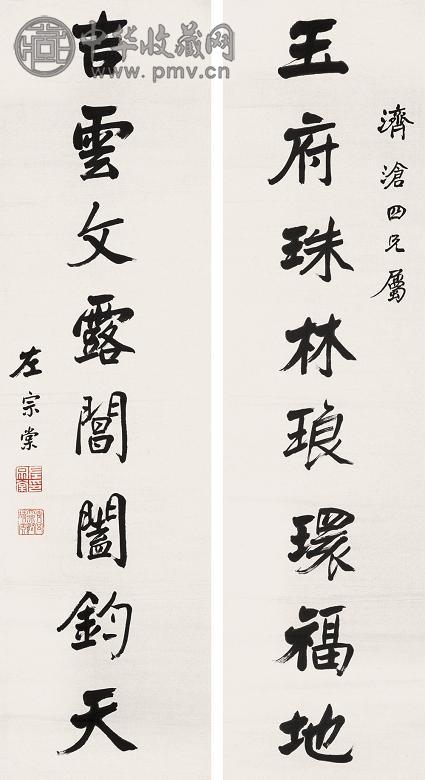 中华收藏网
www.pmv.cn
濟滄四兄屬
玉府珠林琅環福地
吉雲文露閶闔鈞天
左宗棠